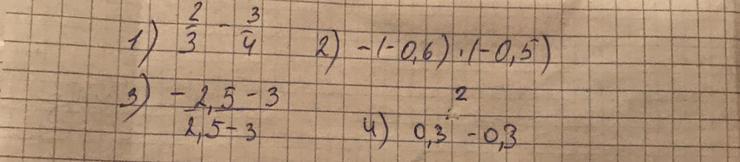 1) 2/3 - 3/4 2) -(-0,6) · (-0,5)
3) (-2,5 - 3)/(2,5 - 3) 4) 0,3² - 0,3